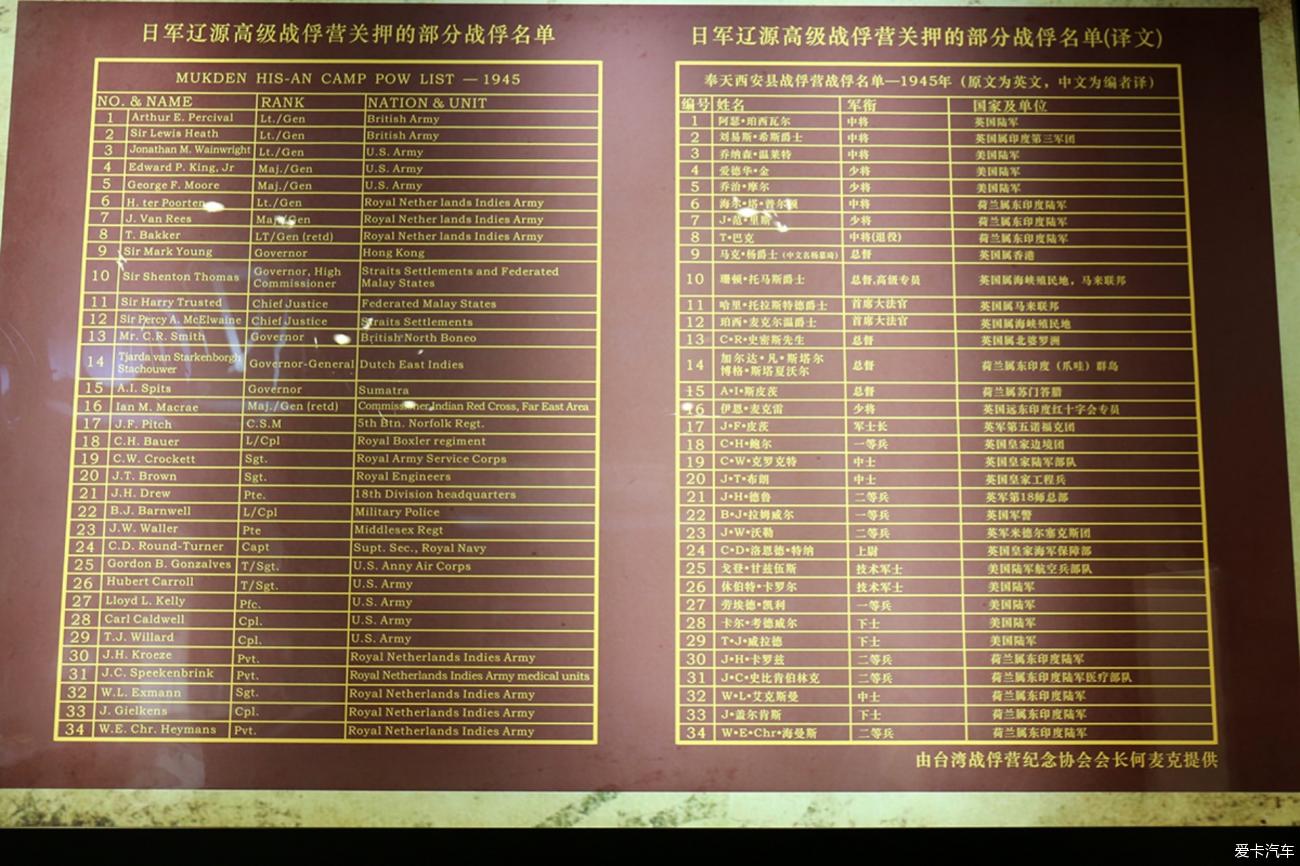 日军辽源高级战俘营关押的部分战俘名单
MUKDEN HIS-AN CAMP POW LIST — 1945
NO. & NAME RANK NATION & UNIT
1 Arthur E. Percival Lt./Gen British Army
2 Sir Lewis Heath Lt./Gen British Army
3 Jonathan M. Wainwright Lt./Gen U.S. Army
4 Edward P. King, Jr Maj./Gen U.S. Army
5 George F. Moore Maj./Gen U.S. Army
6 H. ter Poorten Lt./Gen Royal Nether lands Indies Army
7 J. Van Rees Maj./Gen Royal Nether lands Indies Army
8 T. Bakker LT/Gen (retd) Royal Nether lands Indies Army
9 Sir Mark Young Governor Hong Kong
10 Sir Shenton Thomas Governor, High Commissioner Straits Settlements and Federated Malay States
11 Sir Harry Trusted Chief Justice Federated Malay States
12 Sir Percy A. McElwaine Chief Justice Straits Settlements
13 Mr. C.R. Smith Governor British North Boneo
14 Tjarda van Starkenborgh Stachouwer Governor-General Dutch East Indies
15 A.I. Spits Governor Sumatra
16 Ian M. Macrae Maj./Gen (retd) Commissioner,Indian Red Cross, Far East Area
17 J.F. Pitch C.S.M 5th Btn. Norfolk Regt.
18 C.H. Bauer L/Cpl Royal Boxler regiment
19 C.W. Crockett Sgt. Royal Army Service Corps
20 J.T. Brown Sgt. Royal Engineers
21 J.H. Drew Pte. 18th Division headquarters
22 B.J. Barnwell L/Cpl Military Police
23 J.W. Waller Pte Middlesex Regt
24 C.D. Round-Turner Capt Supt. Sec., Royal Navy
25 Gordon B. Gonzalves T/Sgt. U.S. Anny Air Corps
26 Hubert Carroll T/Sgt. U.S. Army
27 Lloyd L. Kelly Pfc. U.S. Army
28 Carl Caldwell Cpl. U.S. Army
29 T.J. Willard Cpl. U.S. Army
30 J.H. Kroeze Pvt. Royal Netherlands Indies Army
31 J.C. Speekenbrink Pvt. Royal Netherlands Indies Army medical units
32 W.L. Exmann Sgt. Royal Netherlands Indies Army
33 J. Gielkens Cpl. Royal Netherlands Indies Army
34 W.E. Chr. Heymans Pvt. Royal Netherlands Indies Army
日军辽源高级战俘营关押的部分战俘名单(译文)
奉天西安县战俘营战俘名单—1945年（原文为英文，中文为编者译）
编号 姓名 军衔 国家及单位
1 阿瑟•珀西瓦尔 中将 英国陆军
2 刘易斯•希斯爵士 中将 英国属印度第三军团
3 乔纳森•温莱特 中将 美国陆军
4 爱德华•金 少将 美国陆军
5 乔治•摩尔 少将 美国陆军
6 海尔•塔•普尔顿 中将 荷兰属东印度陆军
7 J•范•里斯 少将 荷兰属东印度陆军
8 T•巴克 中将(退役) 荷兰属东印度陆军
9 马克•杨爵士（中文名杨慕琦） 总督 英国属香港
10 珊顿•托马斯爵士 总督,高级专员 英国属海峡殖民地，马来联邦
11 哈里•托拉斯特德爵士 首席大法官 英国属马来联邦
12 珀西•麦克尔温爵士 首席大法官 英国属海峡殖民地
13 C•R•史密斯先生 总督 英国属北婆罗洲
14 加尔达•凡•斯塔尔博格•斯塔夏沃尔 总督 荷兰属东印度（爪哇）群岛
15 A•I•斯皮茨 总督 荷兰属苏门答腊
16 伊恩•麦克雷 少将 英国远东印度红十字会专员
17 J•F•皮茨 军士长 英军第五诺福克团
18 C•H•鲍尔 一等兵 英国皇家边境团
19 C•W•克罗克特 中士 英国皇家陆军部队
20 J•T•布朗 中士 英国皇家工程兵
21 J•H•德鲁 二等兵 英军第18师总部
22 B•J•拉姆威尔 一等兵 英国军警
23 J•W•沃勒 二等兵 英军米德尔塞克斯团
24 C•D•洛恩德•特纳 上尉 英国皇家海军保障部
25 戈登•甘兹伍斯 技术军士 美国陆军航空兵部队
26 休伯特•卡罗尔 技术军士 美国陆军
27 劳埃德•凯利 一等兵 美国陆军
28 卡尔•考德威尔 下士 美国陆军
29 T•J•威拉德 下士 美国陆军
30 J•H•卡罗兹 二等兵 荷兰属东印度陆军
31 J•C•史比肯伯林克 二等兵 荷兰属东印度陆军医疗部队
32 W•L•艾克斯曼 中士 荷兰属东印度陆军
33 J•盖尔肯斯 下士 荷兰属东印度陆军
34 W•E•Chr•海曼斯 二等兵 荷兰属东印度陆军
由台湾战俘营纪念协会会长何麦克提供
爱卡汽车